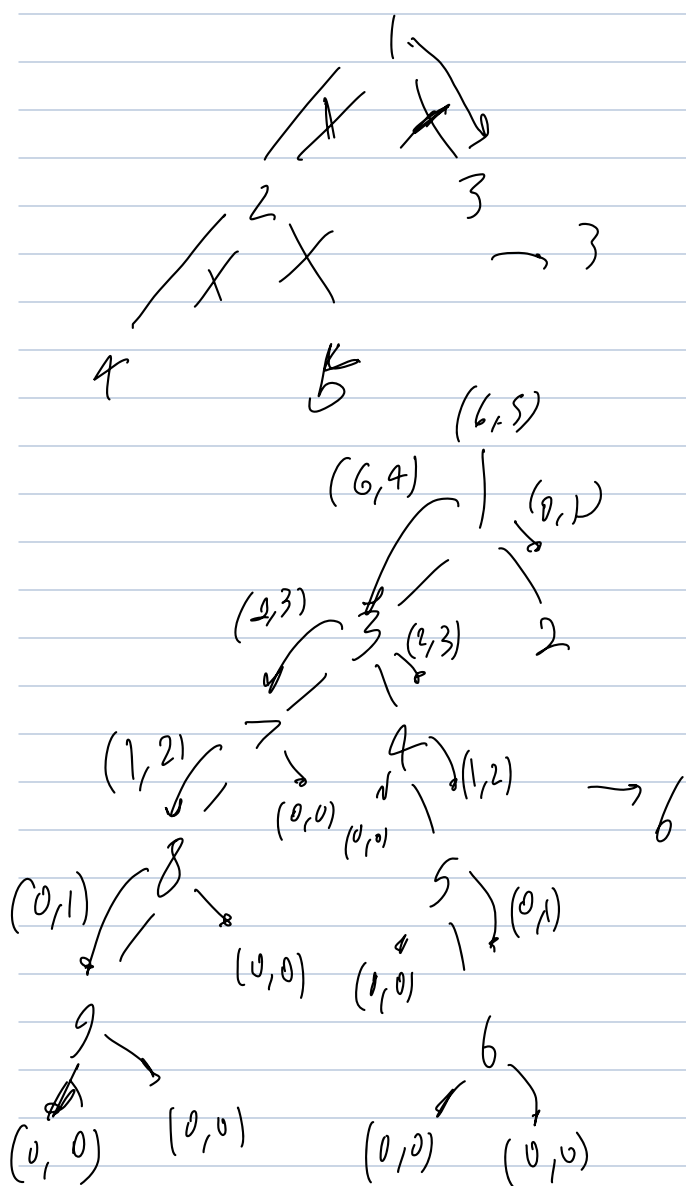 1
2 3
→ 3
4 5
(6,5)
(6,4) 1 (0,1)
(2,3) 3 (2,3) 2
(1,2) 7 4 (1,2)
(0,0) (0,0) → 6
8 5
(0,1) (0,1)
(0,0) (0,0)
9 6
(0,0) (0,0) (0,0) (0,0)